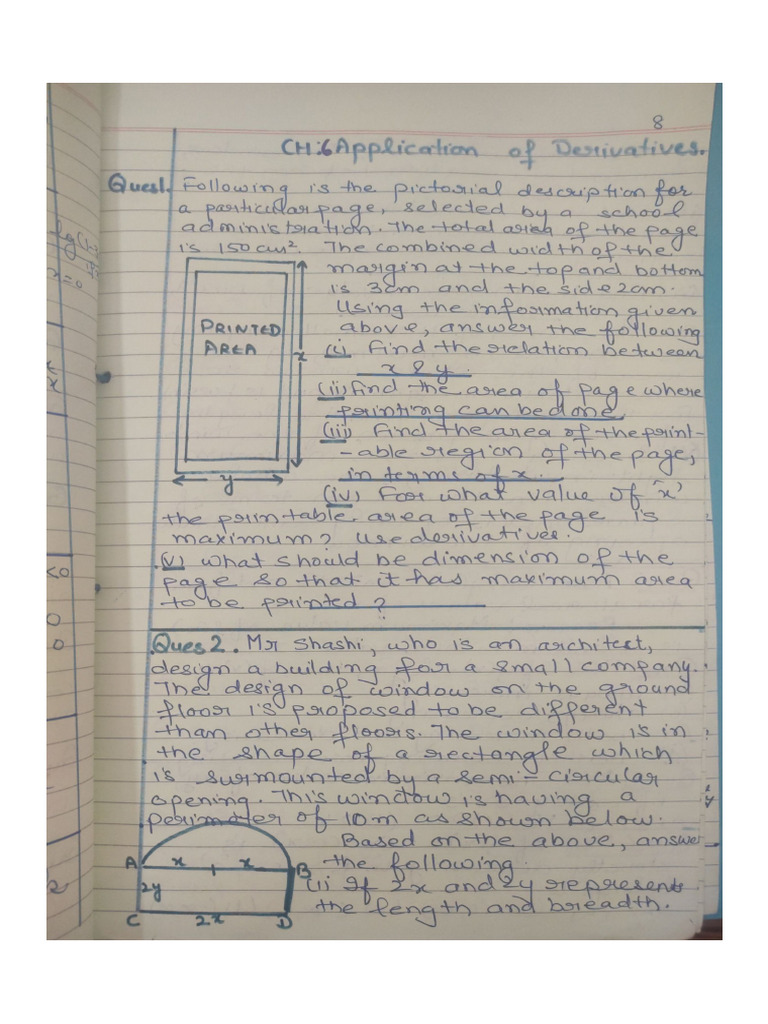 8
CH:6 Application of Derivatives.
Ques1. Following is the pictorial description for
a particular page, selected by a school
administration. The total area of the page
is 150 cm². The combined width of the
margin at the top and bottom
is 3cm and the side 2cm.
Using the information given
above, answer the following
(i) Find the relation between
x & y.
(ii) find the area of page where
printing can be done
(iii) Find the area of the print-
-able region of the page,
in terms of x.
(iv) For what value of 'x'
the printable area of the page is
maximum? use derivatives.
(v) what should be dimension of the
page so that it has maximum area
to be printed?
PRINTED
AREA
x
y
Ques 2. Mr Shashi, who is an architect,
design a building for a small company.
The design of window on the ground
floor is proposed to be different
than other floors. The window is in
the shape of a rectangle which
is surmounted by a semi-circular
opening. This window is having a
perimeter of 10m as shown below.
Based on the above, answer
the following.
(i) If 2x and 2y represents
the length and breadth.
A x x B
2y
C 2x D
x=0
<0
0
0
2